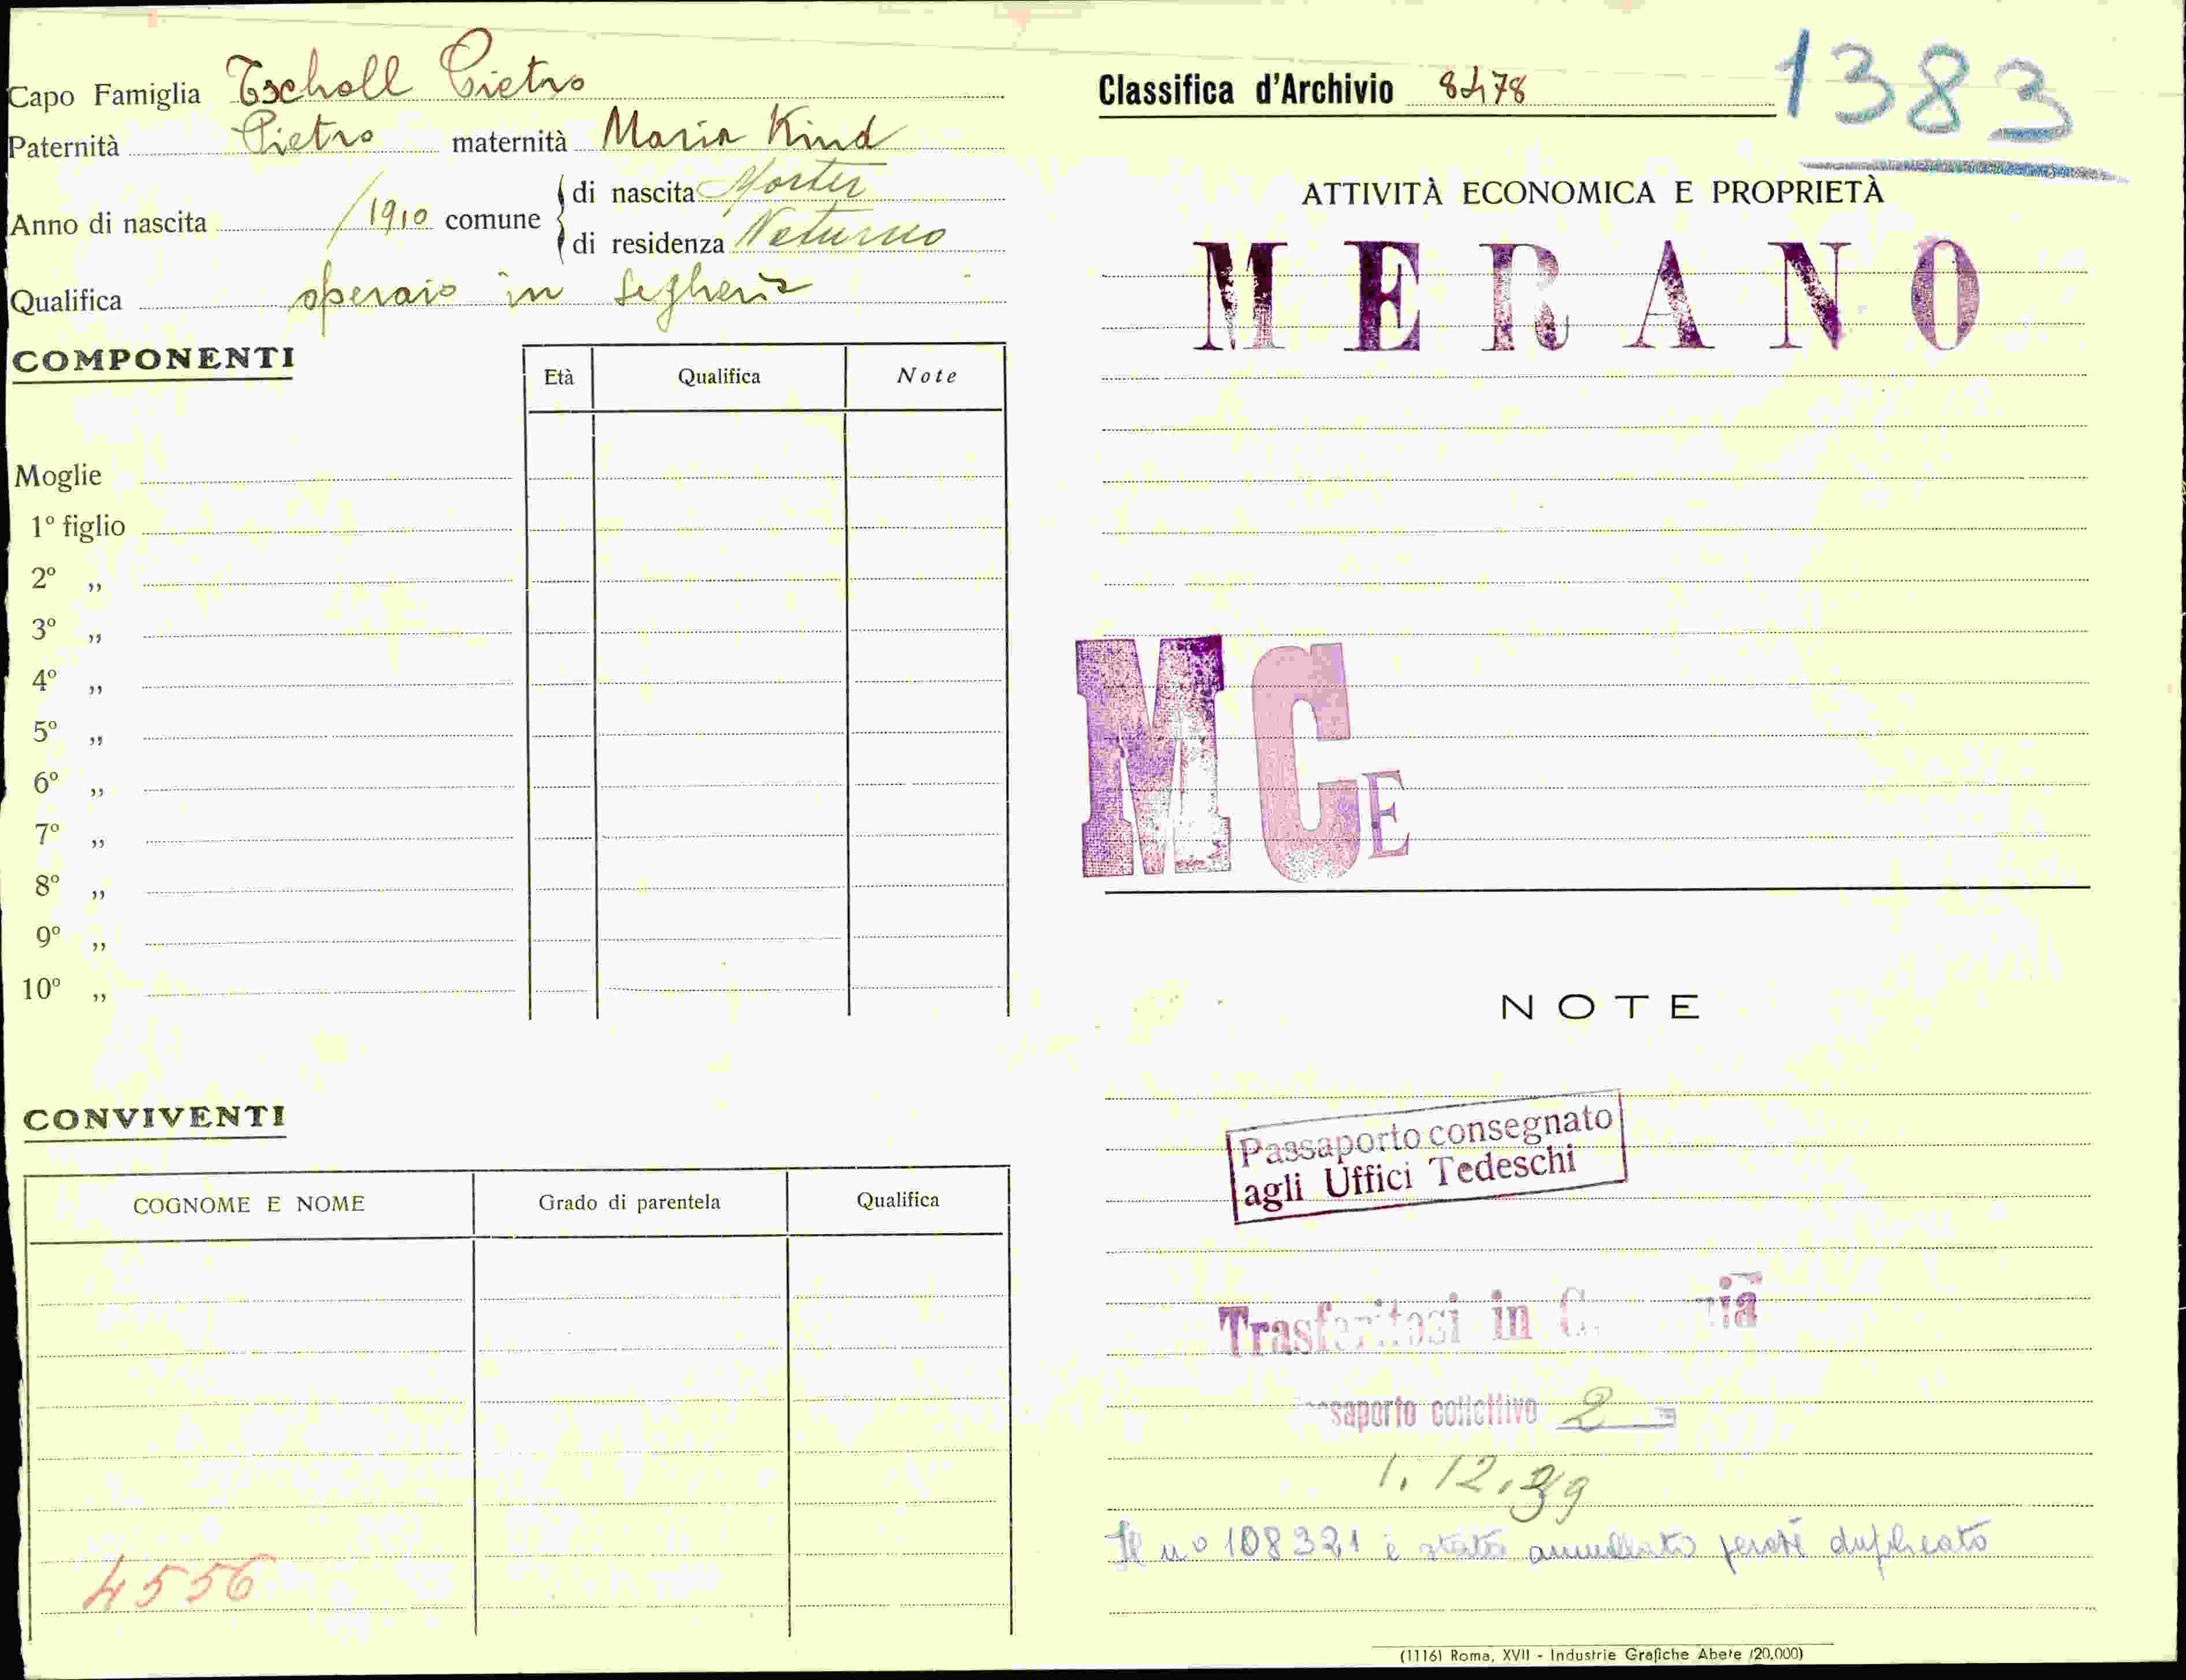 Capo Famiglia Tscholl Pietro
Paternità Pietro maternità Maria Kind
Anno di nascita /1910 comune di nascita Morter
di residenza Naturno
Qualifica operaio in segheria
COMPONENTI
Età Qualifica Note
Moglie
1º figlio
2º „
3º „
4º „
5º „
6º „
7º „
8º „
9º „
10º „
CONVIVENTI
COGNOME E NOME Grado di parentela Qualifica
4556
Classifica d'Archivio 8478
1383
ATTIVITÀ ECONOMICA E PROPRIETÀ
MERANO
MCE
NOTE
Passaporto consegnato
agli Uffici Tedeschi
Trasferitosi in
saporto collettivo 2
1.12.39
Il nº 108321 è stato annullato perchè duplicato
(1116) Roma, XVII - Industrie Grafiche Abete (20.000)